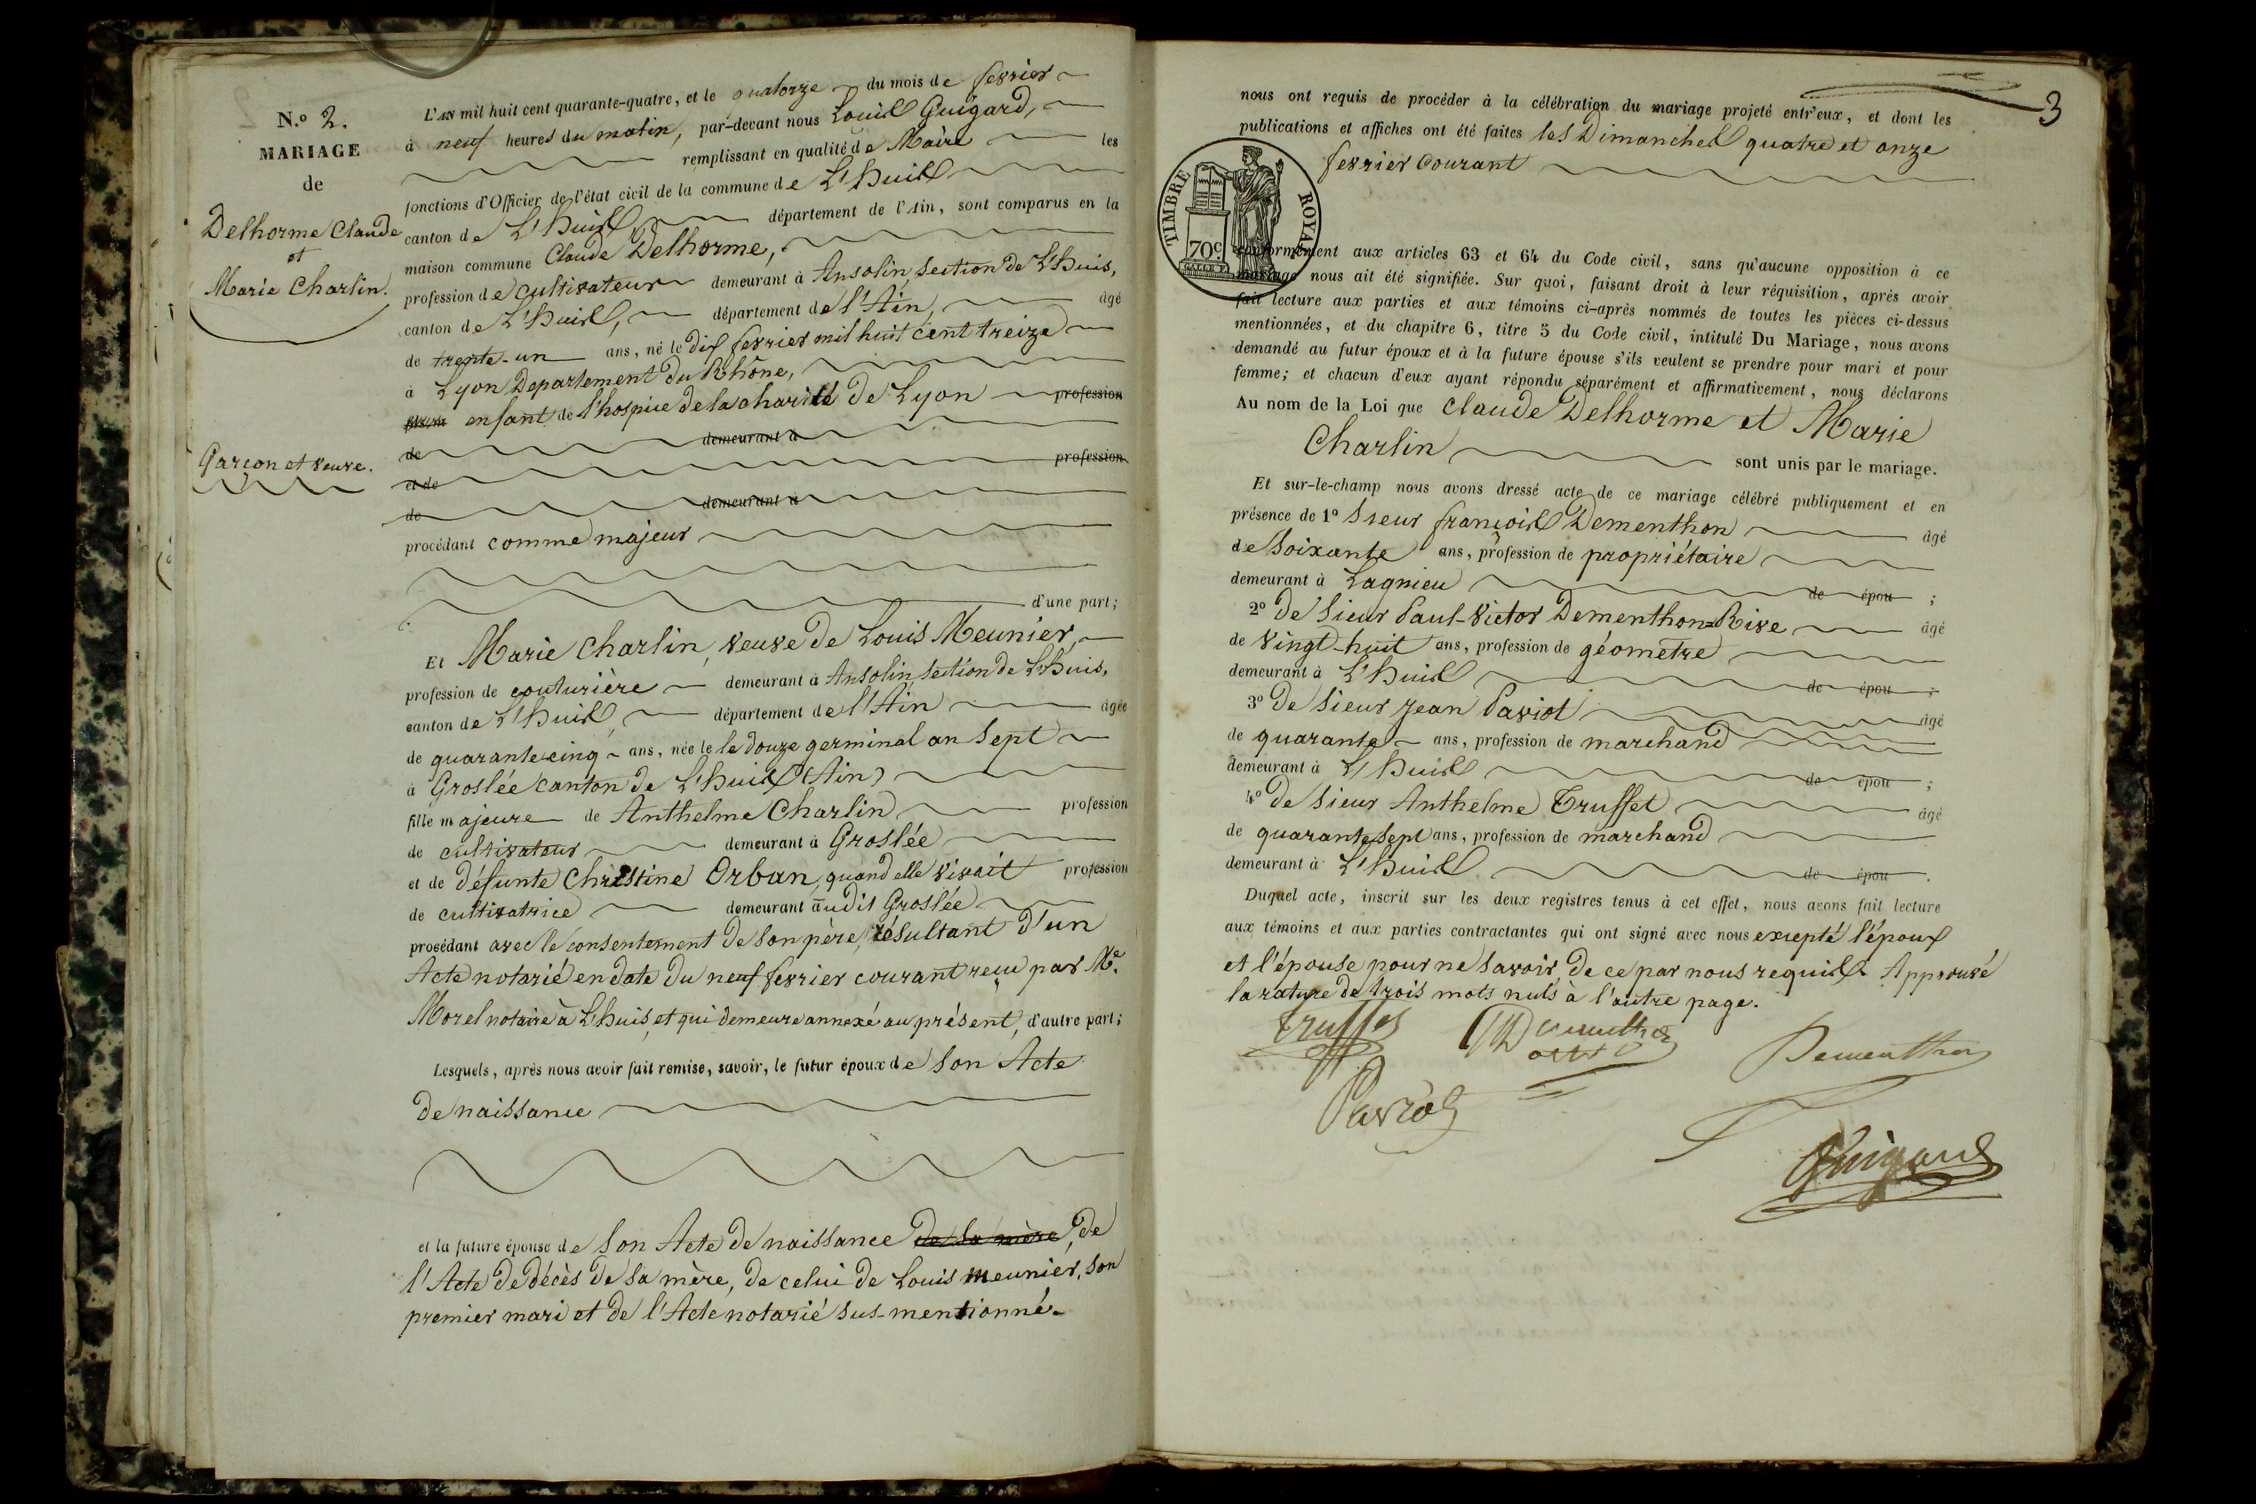 N.o 2.
MARIAGE
de
Delhorme Claude
et
Marie Charlin.
Garçon et veuve.
L'AN mil huit cent quarante-quatre, et le quatorze du mois de fevrier
à neuf heures du matin, par-devant nous Louis Guigard,
remplissant en qualité de Maire les
fonctions d'Officier de l'état civil de la commune de L'huis
canton de L'huis département de l'Ain, sont comparus en la
maison commune Claude Delhorme,
profession de cultivateur demeurant à Ansolin, section de L'huis,
canton de L'huis, département de l'Ain, âgé
de trente-un ans, né le dix fevrier mil huit cent treize
à Lyon Departement du Rhône,
enfant de l'hospice de la charité de Lyon profession
de demeurant à
et de profession
de demeurant à
procédant comme majeur
d'une part;
Et Marie Charlin, veuve de Louis Meunier,
profession de couturière demeurant à Ansolin, section de L'huis,
canton de L'huis, département de l'Ain âgée
de quarante-cinq ans, née le le douze germinal an sept
à Groslée canton de L'huis (Ain)
fille majeure de Anthelme Charlin profession
de cultivateur demeurant à Groslée
et de défunte Christine Orban, quand elle vivait profession
de cultivatrice demeurant audit Groslée
procédant avec le consentement de son père, résultant d'un
Acte notarié en date du neuf fevrier courant reçu par Me.
Morel notaire à L'huis, et qui demeure annexé au présent, d'autre part;
Lesquels, après nous avoir fait remise, savoir, le futur époux de son Acte
de naissance
et la future épouse de son Acte de naissance de sa mère, de
l'Acte de décès de sa mère, de celui de Louis Meunier, son
premier mari et de l'Acte notarié sus-mentionné.
3
nous ont requis de procéder à la célébration du mariage projeté entr'eux, et dont les
publications et affiches ont été faites les Dimanches quatre et onze
fevrier courant
TIMBRE ROYAL
70c
conformément aux articles 63 et 64 du Code civil, sans qu'aucune opposition à ce
mariage nous ait été signifiée. Sur quoi, faisant droit à leur réquisition, après avoir
fait lecture aux parties et aux témoins ci-après nommés de toutes les pièces ci-dessus
mentionnées, et du chapitre 6, titre 5 du Code civil, intitulé Du Mariage, nous avons
demandé au futur époux et à la future épouse s'ils veulent se prendre pour mari et pour
femme; et chacun d'eux ayant répondu séparément et affirmativement, nous déclarons
Au nom de la Loi que Claude Delhorme et Marie
Charlin sont unis par le mariage.
Et sur-le-champ nous avons dressé acte de ce mariage célébré publiquement et en
présence de 1o Sieur françois Dementhon âgé
de soixante ans, profession de propriétaire
demeurant à Lagnieu de épou ;
2o De Sieur Paul-Victor Dementhon=Rive âgé
de vingt-huit ans, profession de géomètre
demeurant à L'huis de épou ;
3o De Sieur Jean Paviot âgé
de quarante ans, profession de marchand
demeurant à L'huis de épou ;
4o De Sieur Anthelme Truffet âgé
de quarante sept ans, profession de marchand
demeurant à L'huis de épou .
Duquel acte, inscrit sur les deux registres tenus à cet effet, nous avons fait lecture
aux témoins et aux parties contractantes qui ont signé avec nous excepté l'époux
et l'épouse pour ne savoir, de ce par nous requis. Approuvé
la rature de trois mots nuls à l'autre page.
Truffet
Dementhon
Paviot
Guigard